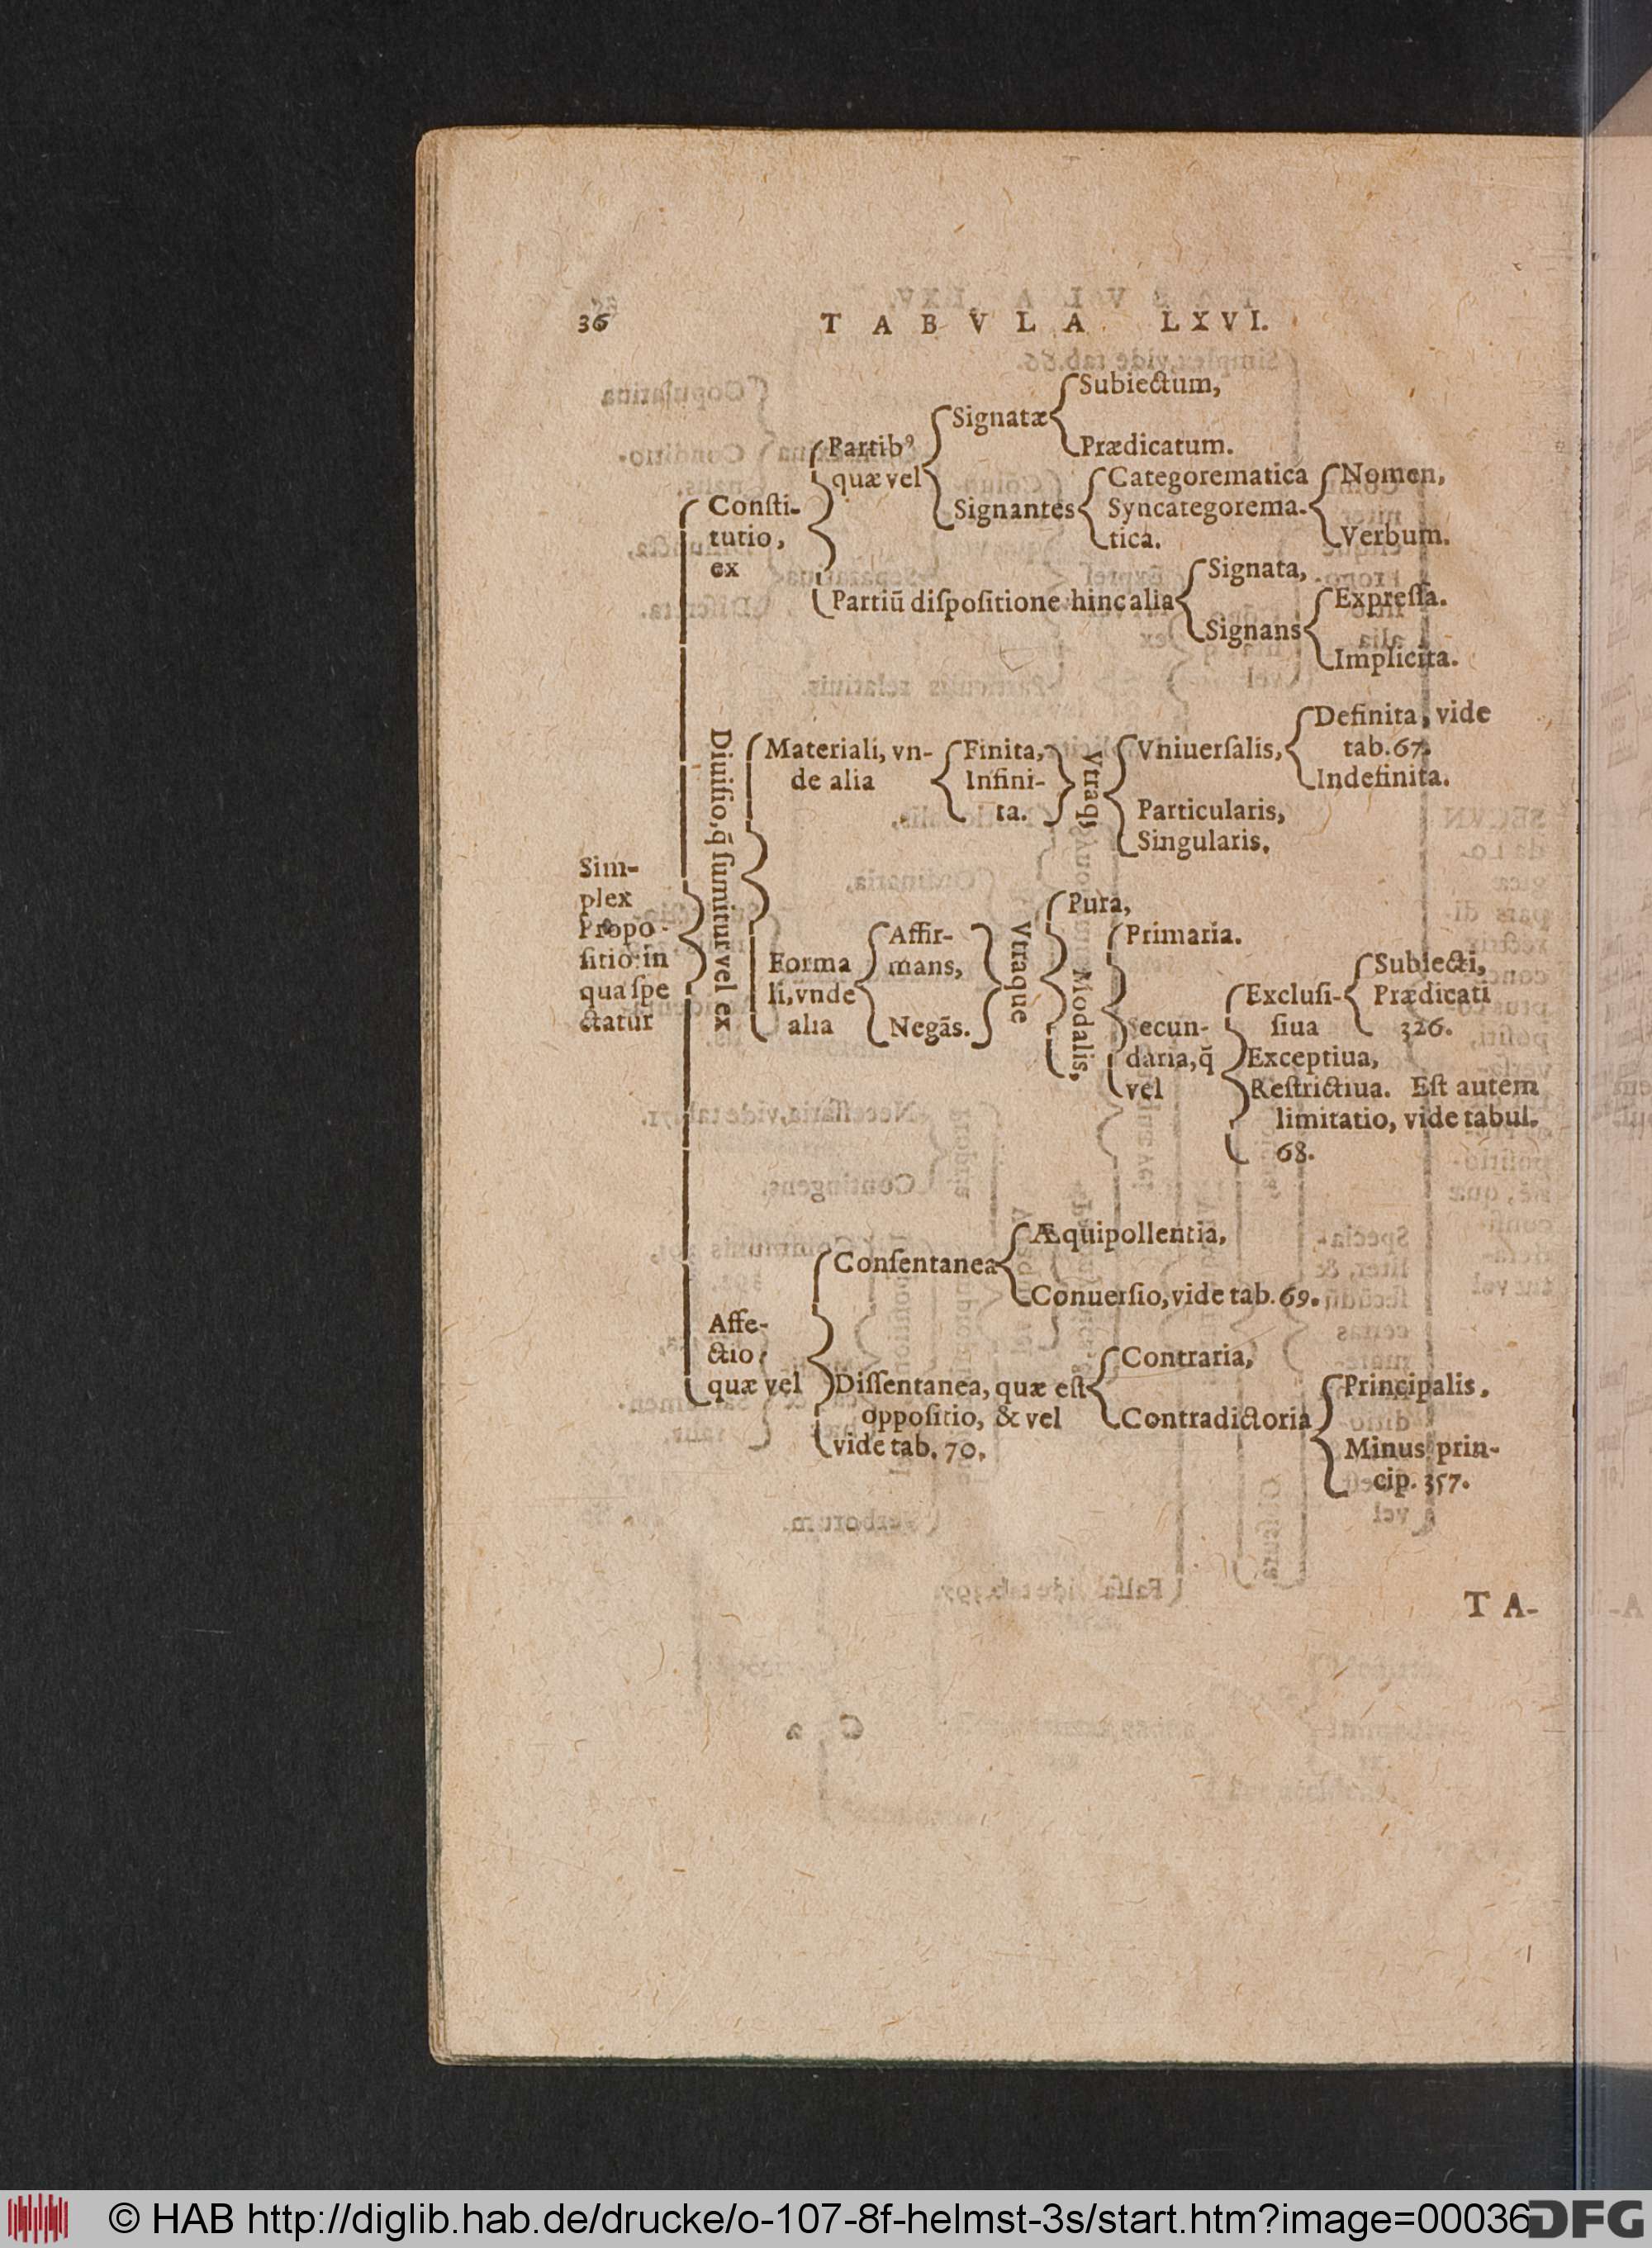 36 TABVLA LXVI.
Sim-
plex
Propo-
sitio: in
qua spe
ctatur
Consti-
tutio,
ex
Partibꝰ
quæ vel
Signatæ
Subiectum,
Prædicatum.
Signantes
Categorematica
Syncategorema-
tica.
Nomen,
Verbum.
Partiū dispositione hinc alia
Signata,
Signans
Expressa.
Implicita.
Diuisio, q̃ sumitur vel ex
Materiali, vn-
de alia
Finita,
Infini-
ta.
Vtraqꝫ
Vniuersalis,
Definita, vide
tab. 67.
Indefinita.
Particularis,
Singularis.
Forma
li, vnde
alia
Affir-
mans,
Negãs.
Vtraque
Pura,
Modalis,
Primaria.
Secun-
daria, q̃
vel
Exclusi-
siua
Subiecti,
Prædicati
326.
Exceptiua,
Restrictiua. Est autem
limitatio, vide tabul.
68.
Affe-
ctio,
quæ vel
Consentanea
Æquipollentia,
Conuersio, vide tab. 69.
Dissentanea, quæ est
oppositio, & vel
vide tab. 70.
Contraria,
Contradictoria
Principalis.
Minus prin-
cip. 357.
TA-
© HAB http://diglib.hab.de/drucke/o-107-8f-helmst-3s/start.htm?image=00036
DFG